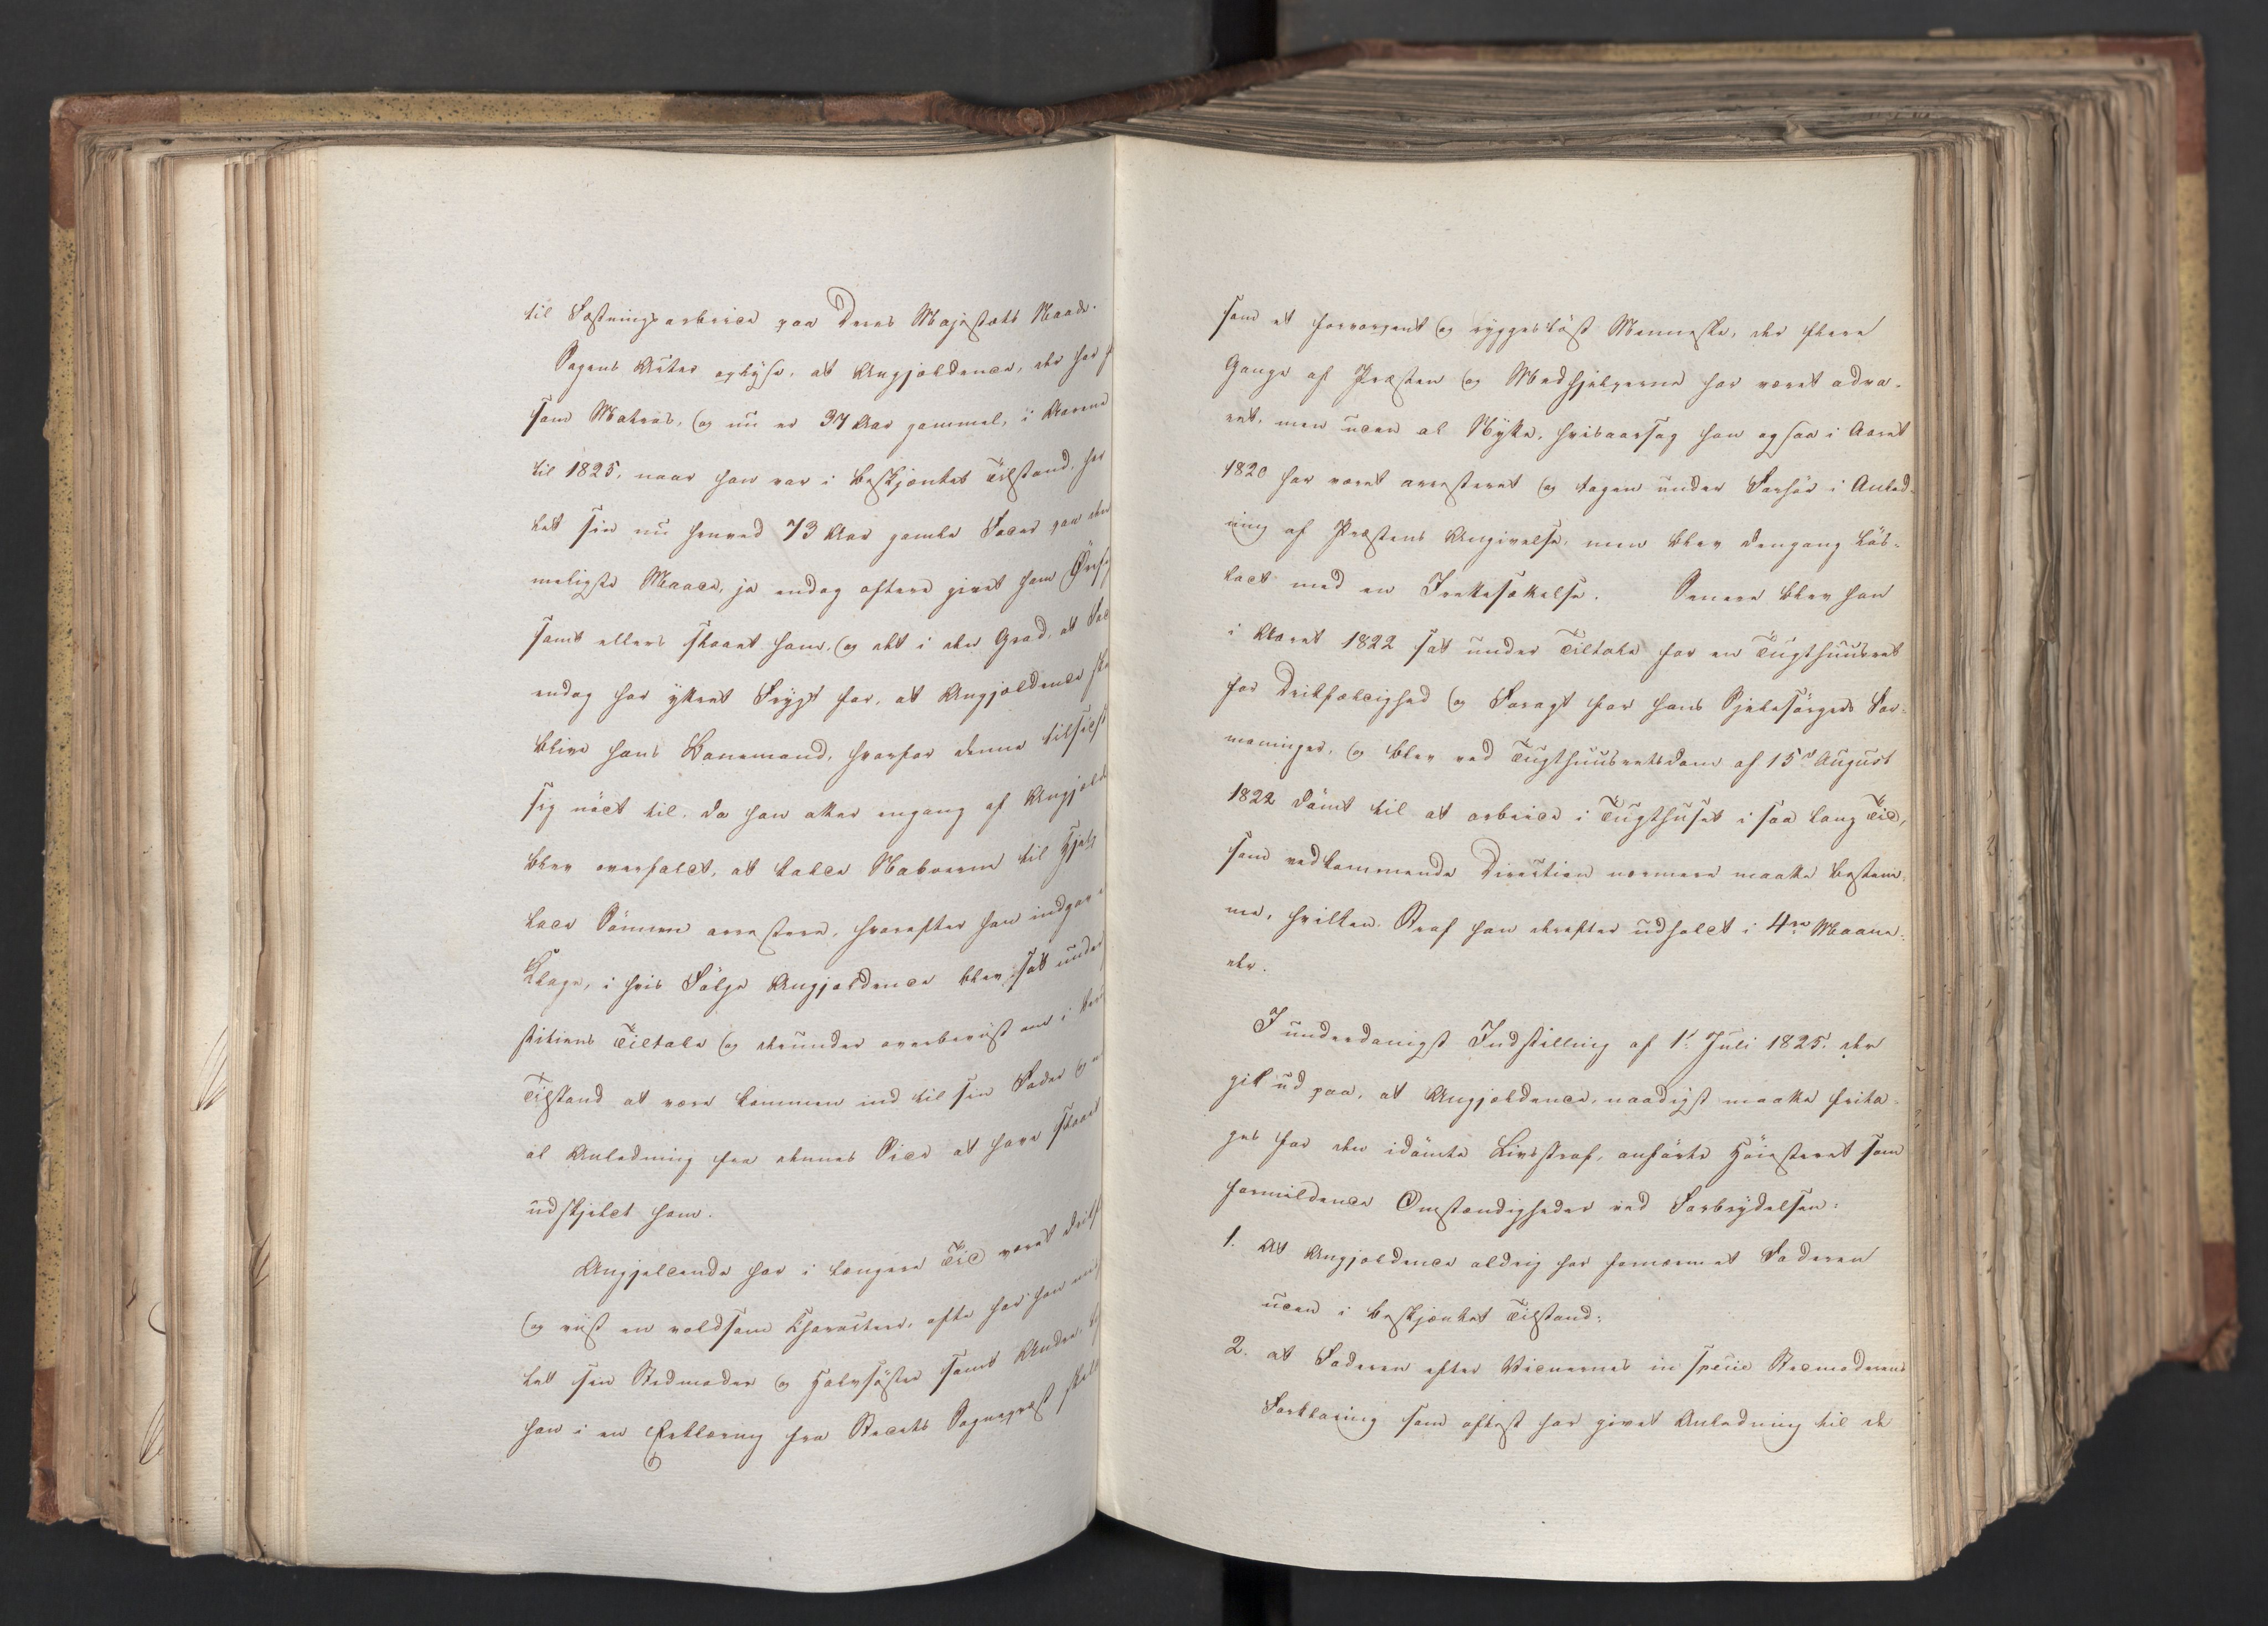 til Fæstningsarbeide paa Deres Majestæts Naade.
Sagens Akter oplyse, at Angjældende, der har
som Matros, og nu er 37 Aar gammel, i Aarene
til 1825, naar han var i beskjænket Tilstand, har
let sin nu henved 73 Aar gamle Fader paa den
meligste Maade, ja endog oftere givet ham
samt ellers slaaet ham, og det i den Grad, at
endog har yttret Frygt for, at Angjældende
blive hans Banemand, hvorfor denne tilsidst
sig nødt til, da han atter engang af
blev overfaldt, at kalde Naboerne til Hjelp
lade Sønnen arrestere, hvorefter han indgav
Klage, i hvis Følge Angjældende blev sat under
stitiens Tiltale og derunder overbeviist om i
Tilstand at være kommen ind til sin Fader og
al Anledning fra dennes Side at have slaaet
udskjeldt ham.
Angjeldende har i længere Tid været
og viist en voldsom Character, ofte har han
let sin Stedmoder og Halvsøster samt Andre,
han i en Erklæring fra Stedets Sognepræst
som et forvorpent og ryggesløst Menneske, der flere
Gange af Præsten og Medhjelperne har været adva-
ret, men uden al Nytte, hvisaarsag han og saa i Aaret
1820 har været arresteret og tagen under Forhør i Anled-
ning af Præstens Angivelse, men blev dengang løs-
ladt med en Irettesættelse. Senere blev han
i Aaret 1822 sat under Tiltale for en Tugthuusret
for Drikfældighed og Foragt for hans Sjelesørgers For-
maninger, og blev ved Tugthuusretsdom af 15de August
1822 dømt til at arbeide i Tugthuset i saa lang Tid,
som vedkommende Direction nærmere maatte bestem-
me, hvilken Straf han derefter udholdt i 4re Maane-
der.
I underdanigst Indstilling af 1ste Juli 1825, der
gik ud paa, at Angjældende naadigst maatte frita-
ges for den idømte Livsstraf, anførte Høiesteret som
formildende Omstændigheder ved Forbrydelsen:
1. At Angjældende aldrig har fornærmet Faderen
uden i beskjænket Tilstand:
2. at Faderen efter Vidnernes in specie Stedmoderens
Forklaring som oftest har givet Anledning til de